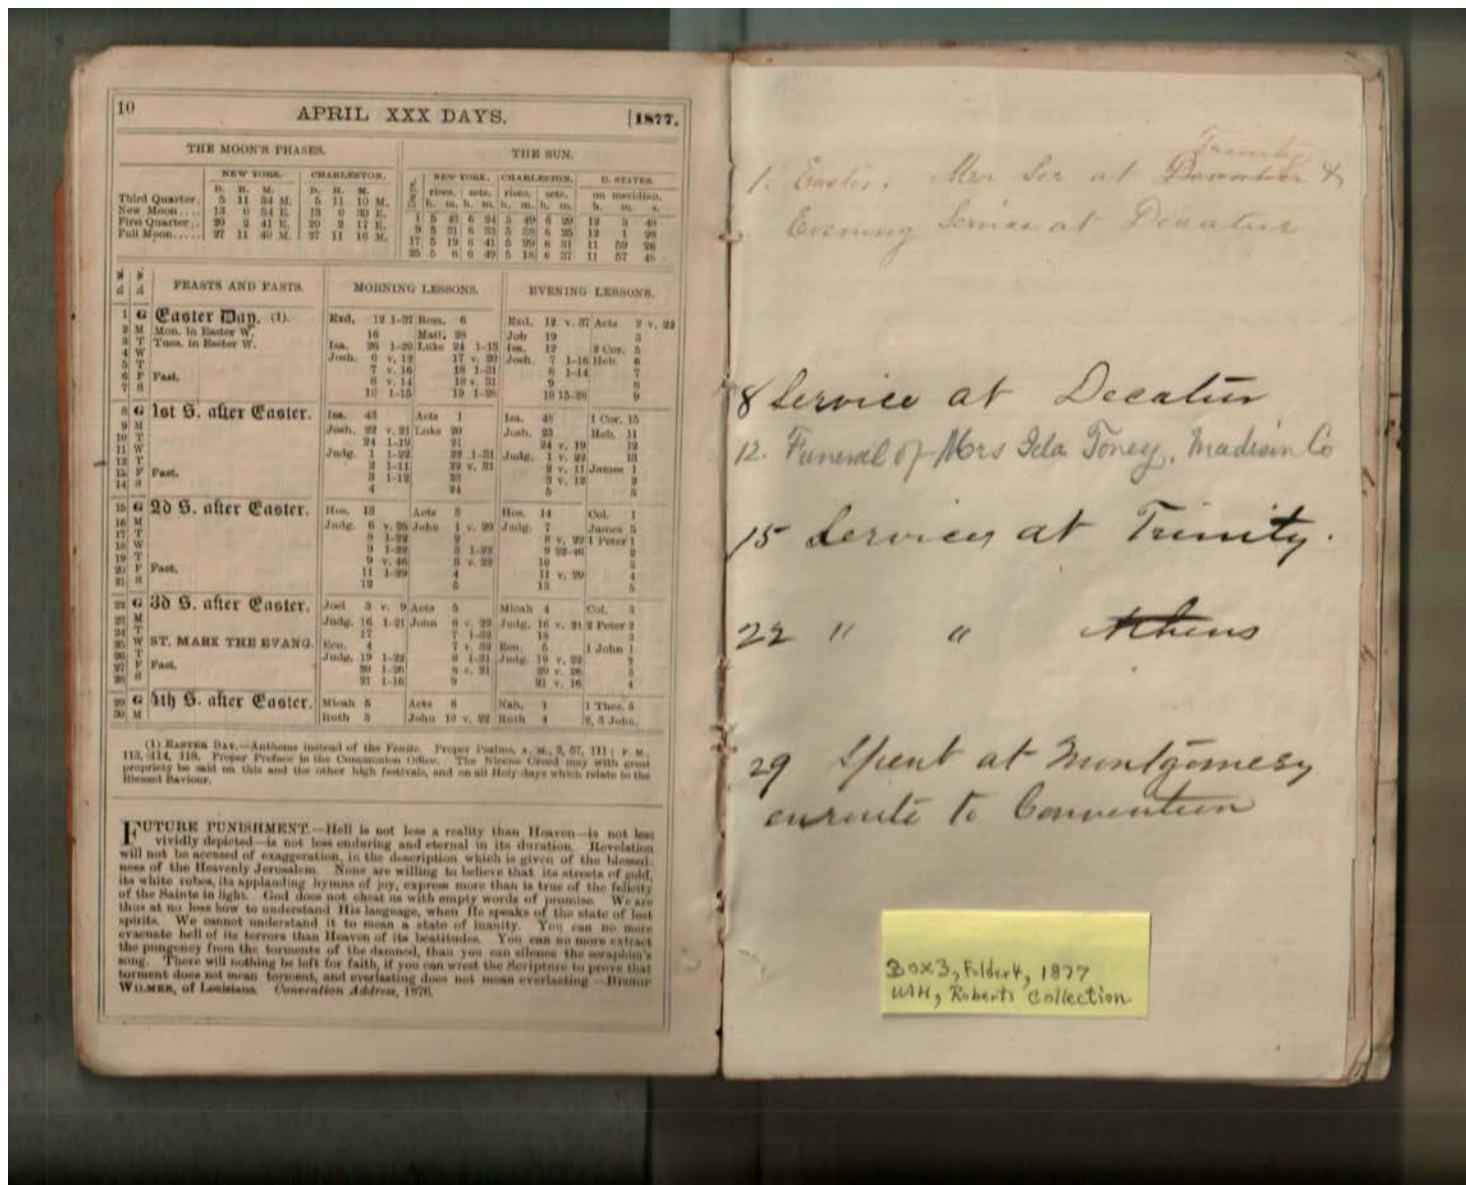 10 APRIL XXX DAYS. [1877.
THE MOON'S PHASES.
THE SUN.
NEW YORK. CHARLESTON.
D. H. M. D. H. M.
Third Quarter. 5 11 34 M. 5 11 10 M.
New Moon.... 13 0 54 E. 13 0 30 E.
First Quarter.. 20 2 41 E. 20 2 17 E.
Full Moon..... 27 11 40 M. 27 11 16 M.
Days. NEW YORK. CHARLESTON. U. STATES.
rises, sets, rises, sets, on meridian.
h. m. h. m. h. m. h. m. h. m. s.
1 5 43 6 24 5 49 6 20 12 3 48
9 5 31 6 33 5 38 6 25 12 1 28
17 5 19 6 41 5 29 6 31 11 59 26
25 5 6 6 49 5 18 6 37 11 57 48
FEASTS AND FASTS. MORNING LESSONS. EVENING LESSONS.
1 G Easter Day. (1). Exd. 12 1-37 Rom. 6 Exd. 12 v. 37 Acts 2 v. 22
2 M Mon. in Easter W. 16 Matt. 28 Job 19 3
3 T Tues. in Easter W. Isa. 26 1-20 Luke 24 1-13 Isa. 12 2 Cor. 5
4 W Josh. 6 v. 12 17 v. 20 Josh. 7 1-16 Heb. 6
5 T 7 v. 16 18 1-31 8 1-14 7
6 F Fast. 8 v. 14 18 v. 31 9 8
7 S 10 1-15 19 1-28 10 15-28 9
8 G 1st S. after Easter. Isa. 43 Acts 1 Isa. 48 1 Cor. 15
9 M Josh. 22 v. 21 Luke 20 Josh. 23 Heb. 11
10 T 24 1-19 21 24 v. 19 12
11 W Judg. 1 1-22 22 1-31 Judg. 1 v. 22 13
12 T 2 1-11 22 v. 31 2 v. 11 James 1
13 F Fast. 3 1-12 23 3 v. 12 2
14 S 4 24 5 3
15 G 2d S. after Easter. Hos. 13 Acts 3 Hos. 14 Col. 1
16 M Judg. 6 v. 25 John 1 v. 29 Judg. 7 James 5
17 T 8 1-22 2 8 v. 22 1 Peter 1
18 W 9 1-22 3 1-22 9 22-46 2
19 T 9 v. 46 3 v. 22 10 3
20 F Fast. 11 1-29 4 11 v. 29 4
21 S 12 5 13 5
22 G 3d S. after Easter. Joel 3 v. 9 Acts 5 Micah 4 Col. 3
23 M Judg. 16 1-21 John 6 v. 22 Judg. 16 v. 21 2 Peter 2
24 T 17 7 1-32 18 3
25 W ST. MARK THE EVANG. Ecu. 4 7 v. 32 Ecu. 5 1 John 1
26 T Judg. 19 1-22 8 1-21 Judg. 19 v. 22 2
27 F Fast. 20 1-26 8 v. 21 20 v. 26 3
28 S 21 1-16 9 21 v. 16 4
29 G 4th S. after Easter. Micah 5 Acts 8 Nah. 1 1 Thes. 5
30 M Ruth 3 John 10 v. 22 Ruth 4 2, 3 John.
(1) EASTER DAY.—Anthems instead of the Venite. Proper Psalms, A. M., 2, 57, 111; P. M.,
113, 114, 118. Proper Preface in the Communion Office. The Nicene Creed may with great
propriety be said on this and the other high festivals, and on all Holy-days which relate to the
Blessed Saviour.
FUTURE PUNISHMENT.—Hell is not less a reality than Heaven—is not less
vividly depicted—is not less enduring and eternal in its duration. Revelation
will not be accused of exaggeration, in the description which is given of the blessed-
ness of the Heavenly Jerusalem. None are willing to believe that its streets of gold,
its white robes, its applauding hymns of joy, express more than is true of the felicity
of the Saints in light. God does not cheat us with empty words of promise. We are
thus at no loss how to understand His language, when He speaks of the state of lost
spirits. We cannot understand it to mean a state of inanity. You can no more
evacuate hell of its terrors than Heaven of its beatitudes. You can no more extract
the pungency from the torments of the damned, than you can silence the seraphim's
song. There will nothing be left for faith, if you can wrest the Scripture to prove that
torment does not mean torment, and everlasting does not mean everlasting.—BISHOP
WILMER, of Louisiana. Convention Address, 1876.
Trinity
1. Easter. Mrn Ser at Decatur &
Evening Service at Decatur
8 Service at Decatur
12. Funeral of Mrs Ida Toney, Madison Co
15 Services at Trinity.
22 " " Athens
29 Spent at Montgomery
enroute to Convention
Box3, Folder4, 1877
UAH, Roberts Collection